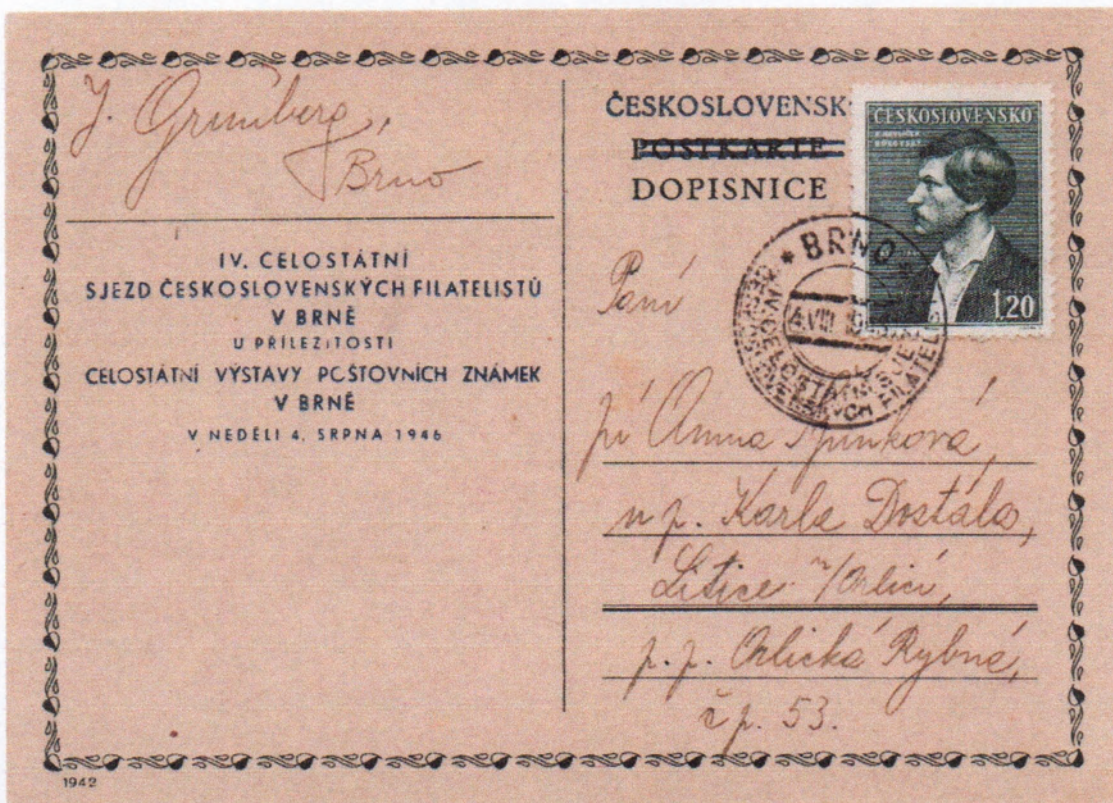 J. Grünberg,
Brno
IV. CELOSTÁTNÍ
SJEZD ČESKOSLOVENSKÝCH FILATELISTŮ
V BRNĚ
U PŘÍLEŽITOSTI
CELOSTÁTNÍ VÝSTAVY POŠTOVNÍCH ZNÁMEK
V BRNĚ
V NEDĚLI 4. SRPNA 1946
ČESKOSLOVENSK
POSTKARTE
DOPISNICE
ČESKOSLOVENSKO
1.20
* BRNO *
4.VIII.
Paní
pí Anna
u p. Karla Dostála,
Litice n/Orlicí,
p. p. Orlická Rybná,
čp. 53.
1942